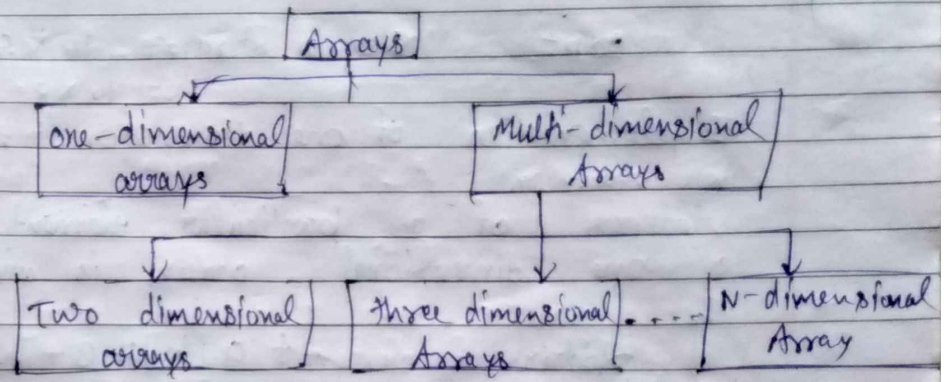 Arrays
one-dimensional
arrays
Multi-dimensional
Arrays
Two dimensional
arrays
three dimensional
Arrays
.....
N-dimensional
Array